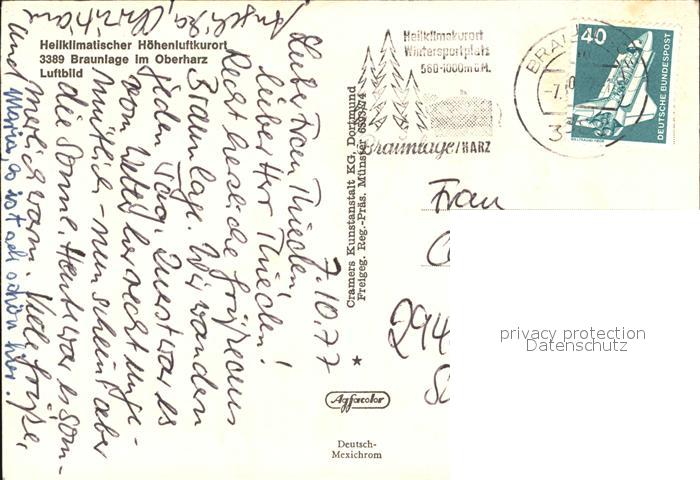 Heilklimatischer Höhenluftkurort
3389 Braunlage im Oberharz
Luftbild
7.10.77
Liebe Frau Thieden,
lieber Herr Thieden!
Recht herzliche Grüße aus
Braunlage. Wir wandern
jeden Tag. Zuerst war es
vom Wetter her recht unge-
mütlich - nun scheint aber
die Sonne. Heute war es som-
merlich warm. Viele Grüße,
und
Angelika, Christian
Maria, es ist ach schön hier!
Cramers Kunstanstalt KG, Dortmund
Freigeg. Reg.-Präs. Münster
*
Agfacolor
Deutsch-
Mexichrom
Heilklimakurort
Wintersportplatz
560-1000m ü.M.
Braunlage/HARZ
-7.
40
DEUTSCHE BUNDESPOST
Frau
294
privacy protection
Datenschutz